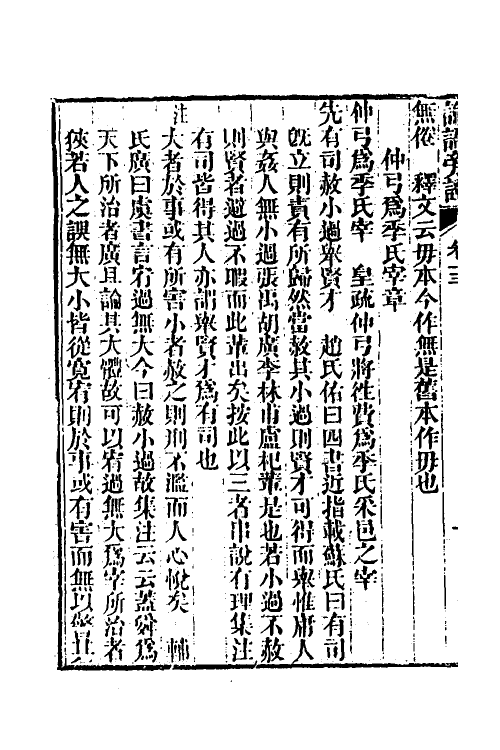 論語旁證 卷十三
無倦 釋文云毋本今作無是舊本作毋也
仲弓爲季氏宰章
仲弓爲季氏宰 皇疏仲弓將往費爲季氏采邑之宰
先有司赦小過舉賢才 趙氏佑曰四書近指載蘇氏曰有司
旣立則責有所歸然當赦其小過則賢才可得而舉惟庸人
與姦人無小過張禹胡廣李林甫盧杞輩是也若小過不赦
則賢者避過不暇而此輩出矣按此以三者串說有理集注
有司皆得其人亦謂舉賢才爲有司也
注大者於事或有所害小者赦之則刑不濫而人心悅矣 輔
氏廣曰虞書言宥過無大今曰赦小過故集注云云蓋舜爲
天下所治者廣且論其大體故可以宥過無大爲宰所治者
狹若人之誤無大小皆從寬宥則於事或有害而無以警